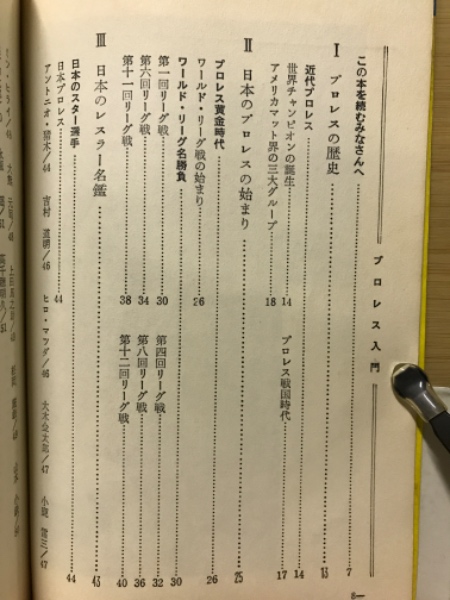 プロレス入門
この本を読むみなさんへ……7
Ⅰ プロレスの歴史……13
近代プロレス……14
世界チャンピオンの誕生……14
プロレス戦国時代……17
アメリカマット界の三大グループ……18
Ⅱ 日本のプロレスの始まり……25
プロレス黄金時代……26
ワールド・リーグ戦の始まり……26
ワールド・リーグ名勝負……30
第一回リーグ戦……30
第四回リーグ戦……32
第六回リーグ戦……34
第八回リーグ戦……36
第十一回リーグ戦……38
第十二回リーグ戦……40
Ⅲ 日本のレスラー名鑑……43
日本のスター選手……44
日本プロレス……44
アントニオ・猪木/44 吉村道明/46 ヒロ・マツダ/46 大木金太郎/47 小鹿雷三/47
8—